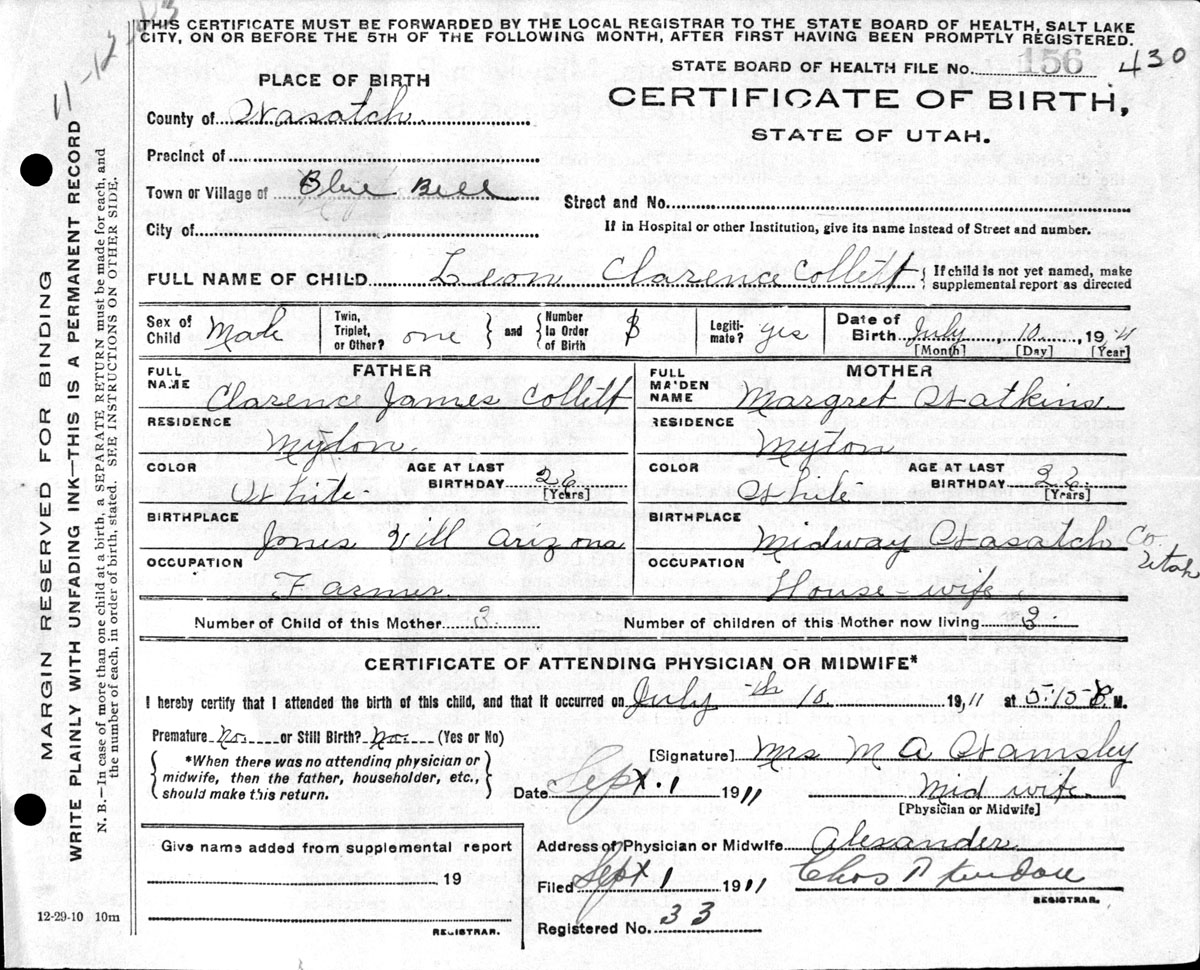 11-12-13
THIS CERTIFICATE MUST BE FORWARDED BY THE LOCAL REGISTRAR TO THE STATE BOARD OF HEALTH, SALT LAKE
CITY, ON OR BEFORE THE 5TH OF THE FOLLOWING MONTH, AFTER FIRST HAVING BEEN PROMPTLY REGISTERED.
STATE BOARD OF HEALTH FILE No. 156 430
CERTIFICATE OF BIRTH,
STATE OF UTAH.
PLACE OF BIRTH
County of Wasatch
Precinct of
Town or Village of Blue Bell
City of
Street and No.
If in Hospital or other Institution, give its name instead of Street and number.
FULL NAME OF CHILD Leon Clarence Collett { If child is not yet named, make
supplemental report as directed
Sex of Child Male
Twin, Triplet, or Other? one } and { Number in Order of Birth
Legitimate? yes
Date of Birth July, 10, 19
[Month] [Day] [Year]
FATHER
FULL NAME Clarence James Collett
RESIDENCE Myton.
COLOR White
AGE AT LAST BIRTHDAY 26 [Years]
BIRTHPLACE Jones Vill Arizona
OCCUPATION Farmer.
MOTHER
FULL MAIDEN NAME Margret Watkins.
RESIDENCE Myton
COLOR White
AGE AT LAST BIRTHDAY 26. [Years]
BIRTHPLACE Midway Wasatch Co. Utah
OCCUPATION House-wife.
Number of Child of this Mother 3
Number of children of this Mother now living 3.
CERTIFICATE OF ATTENDING PHYSICIAN OR MIDWIFE*
I hereby certify that I attended the birth of this child, and that it occurred on July th 10 1911 at 5:15 M.
Premature No. or Still Birth? No. (Yes or No)
{ *When there was no attending physician or
midwife, then the father, householder, etc.,
should make this return. }
[Signature] Mrs M A Wamsley
Date Sept. 1 1911
Mid wife.
[Physician or Midwife]
Address of Physician or Midwife Alexander
Filed Sept 1 1911 Chos
REGISTRAR.
Registered No. 33
Give name added from supplemental report
19
REGISTRAR.
12-29-10 10m
MARGIN RESERVED FOR BINDING
WRITE PLAINLY WITH UNFADING INK—THIS IS A PERMANENT RECORD
N. B.—In case of more than one child at a birth, a SEPARATE RETURN must be made for each, and
the number of each, in order of birth, stated. SEE INSTRUCTIONS ON OTHER SIDE.